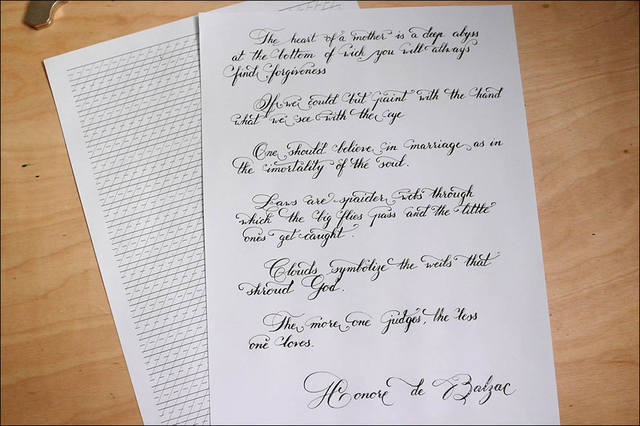 The heart of a mother is a deep abyss
at the bottom of wich you will allways
find forgiveness
If we could but paint with the hand
what we see with the eye
One should believe in marriage as in
the imortality of the soul.
Laws are spaider webs through
which the big flies pass and the little
ones get caught.
Clouds symbolize the veils that
shroud God.
The more one judges, the less
one loves.
Honore de Balzac